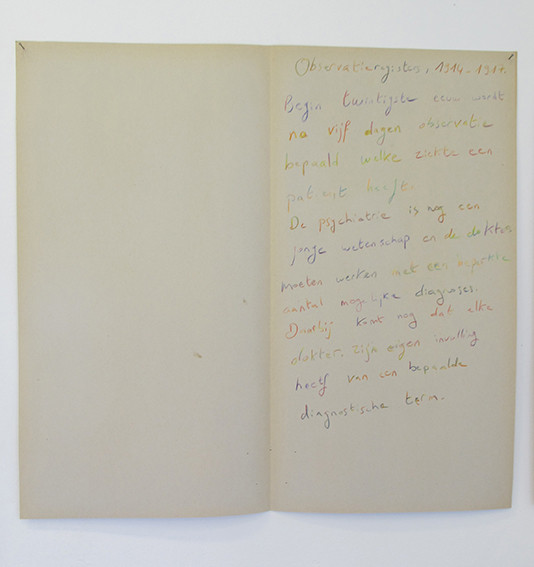 Observatieregisters, 1914-1917.
Begin twintigste eeuw werdt
na vijf dagen observatie
bepaald welke ziekte een
patient heeft.
De psychiatrie is nog een
jonge wetenschap en de dokters
moeten werken met een beperkte
aantal mogelijke diagnoses.
Daarbij komt nog dat elke
dokter zijn eigen invulling
heeft van een bepaalde
diagnostische term.